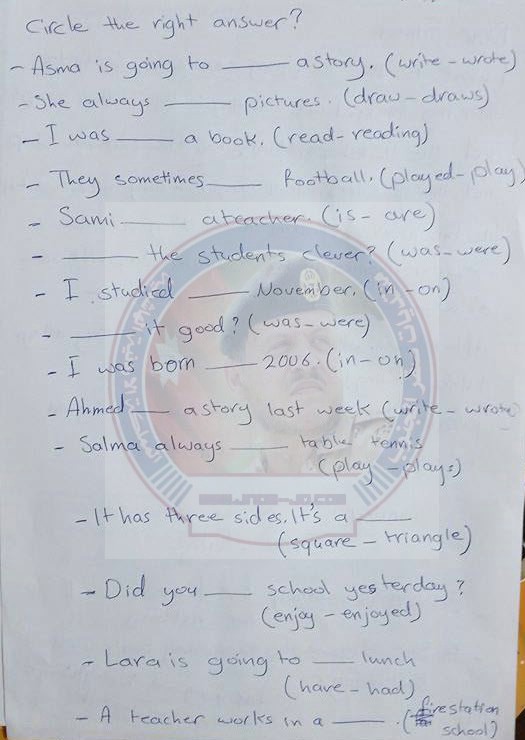 Circle the right answer?
- Asma is going to ____ a story. (write - wrote)
- She always ____ pictures. (draw - draws)
- I was ____ a book. (read - reading)
- They sometimes ____ football. (played - play)
- Sami ____ a teacher. (is - are)
- ____ the students clever? (was - were)
- I studied ____ November. (in - on)
- ____ it good? (was - were)
- I was born ____ 2006. (in - on)
- Ahmed ____ a story last week (write - wrote)
- Salma always ____ table tennis
(play - plays)
- It has three sides. It's a ____
(square - triangle)
- Did you ____ school yesterday?
(enjoy - enjoyed)
- Lara is going to ____ lunch
(have - had)
- A teacher works in a ____. (firestation
school)